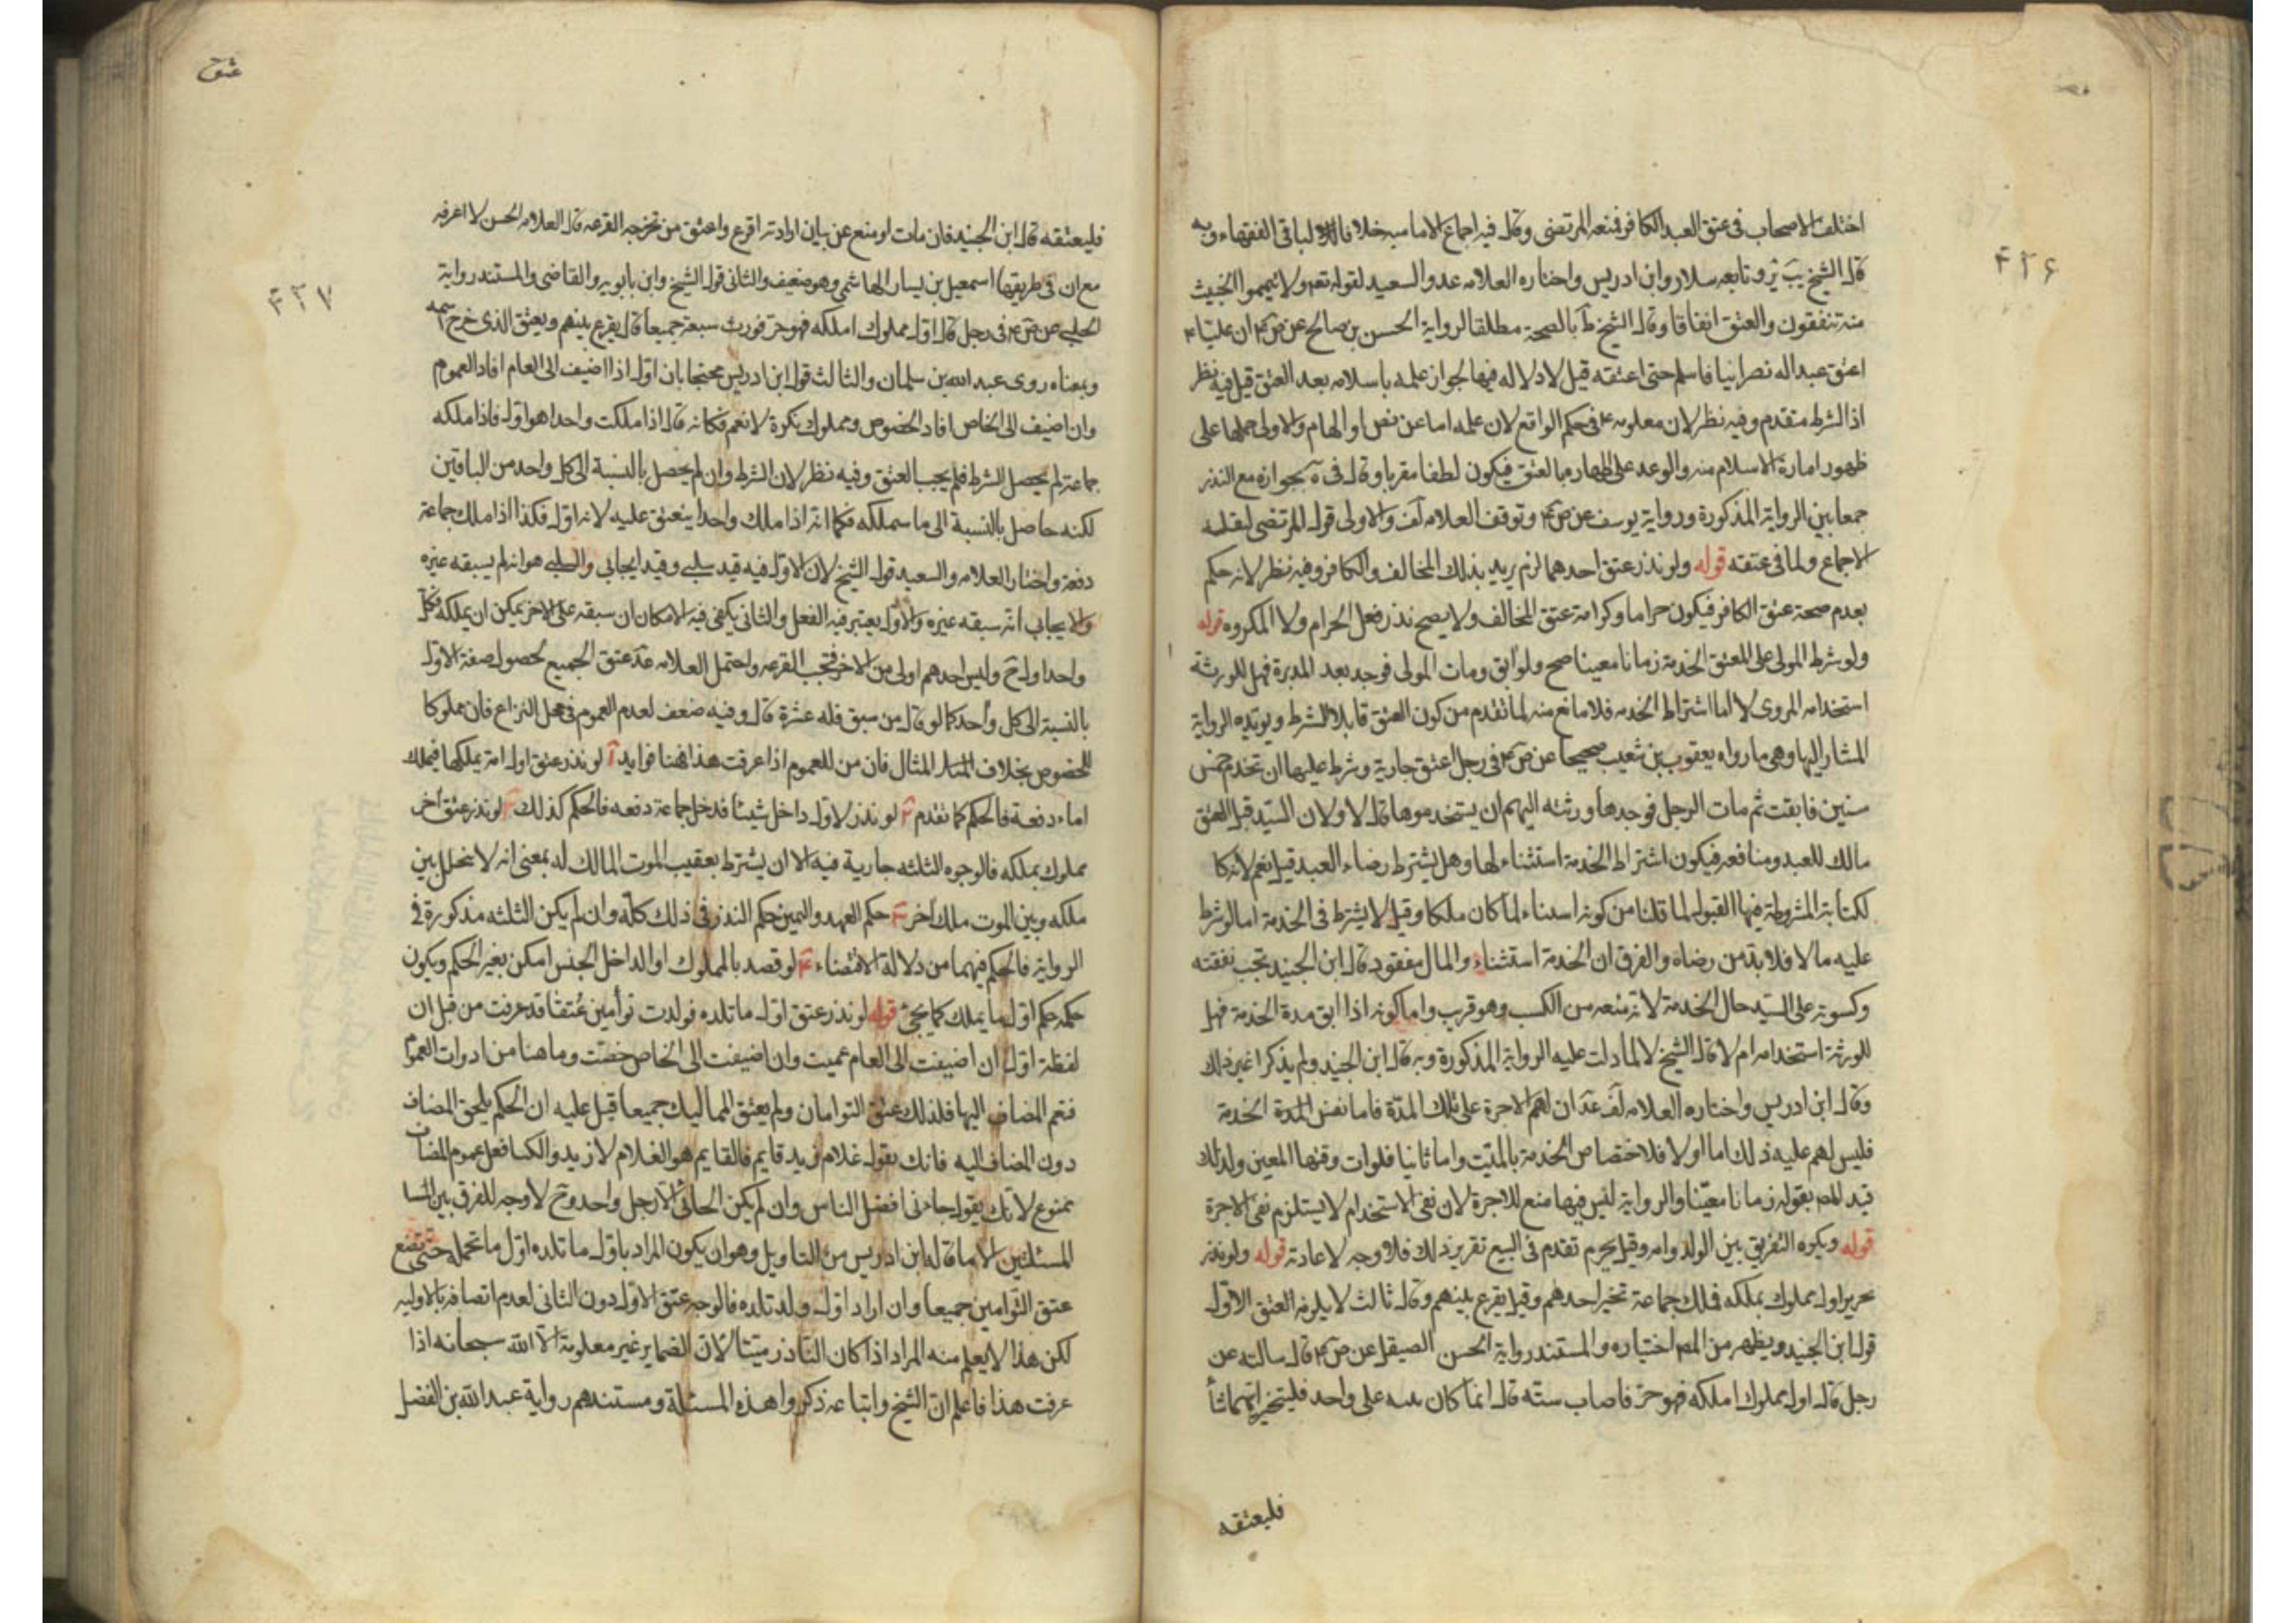 ۴۲۶
اختلف الاصحاب فى عتق العبد الكافر فمنعه المرتضى وقال فيه اجماع الاماميه خلافا لباقى الفقهاء وبه
قال الشيخ يب ير وتابعه سلار وابن ادريس واختاره العلامه عد والسعيد لقوله تعم ولا تيمموا الخبيث
منه تنفقون والعتق انفاقا وقال الشيخ ط بالصحة مطلقا لرواية الحسن بن صالح عن ص ع ان عليا ع
اعتق عبدا له نصرانيا فاسلم حتى اعتقه قيل لا دلاله فيها لجواز علمه باسلامه بعد العتق قيل فيه نظر
اذ الشرط متقدم وفيه نظر لان معلومه ع فى حكم الواقع لان علمه اما عن نص او الهام والاولى حملها على
ظهور امارة الاسلام منه والوعد على اظهاره بالعتق فيكون لطفا مقربا وقال فى يه بجوازه مع النذر
جمعا بين الرواية المذكورة ورواية يوسف عن ص ع وتوقف العلامه لف والاولى قول المرتضى لنقله
الاجماع ولما فى عتقه قوله ولو نذر عتق احدهما لزم يريد بذلك المخالف والكافر وفيه نظر لانه حكم
بعدم صحة عتق الكافر فيكون حراما وكراهة عتق المخالف ولا يصح نذر فعل الحرام ولا المكروه قوله
ولو شرط المولى على المعتق الخدمة زمانا معينا صح ولو ابق ومات المولى فوجد بعد المدة فهل للورثة
استخدامه المروى لا اما اشتراط الخدمه فلا مانع منه لما تقدم من كون العتق قابلا للشرط ويؤيده الرواية
المشار اليها وهى ما رواه يعقوب بن شعيب صحيحا عن ص ع فى رجل اعتق جارية وشرط عليها ان تخدم خمس
سنين فابقت ثم مات الرجل فوجدها ورثته الهم ان يستخدموها قال لا ولان السيد قبل العتق
مالك للعبد ومنافعه فيكون اشتراط الخدمة استثناء لها وهل يشترط رضاء العبد قيل نعم لانه كا
لكتابة المشروطة فيها القبول لما قلنا من كونه استثناء لما كان ملكا وقيل لا يشترط فى الخدمة اما لو شرط
عليه مالا فلا بد من رضاه والفرق ان الخدمة استثناء والمال مفقود قال ابن الجنيد تجب نفقته
وكسوته على السيد حال الخدمة لانه منعه من الكسب وهو قريب واما كونه اذا ابق مدة الخدمة فهل
للورثة استخدامه ام لا قال الشيخ لا لما دلت عليه الرواية المذكورة وبه قال ابن الجنيد ولم يذكرا غير ذلك
وقال ابن ادريس واختاره العلامه لف عد ان لهم الاجرة على تلك المدة فاما نفس المدة الخدمة
فليس لهم عليه ذلك اما اولا فلاختصاص الخدمة بالميت واما ثانيا فلوات وقتها المعين ولذلك
قيد المصر بقوله زمانا معينا والرواية ليس فيها منع للاجرة لان نفى الاستخدام لا يستلزم نفى الاجرة
قوله ويكره التفريق بين الولد وامه وقيل يحرم تقدم فى البيع تقرير ذلك فلا وجه لاعادته قوله ولو نذر
تحرير اول مملوك يملكه فملك جماعة تخير احدهم وقيل يقرع بينهم وقال ثالث لا يلزمه العتق الاول
قول ابن الجنيد ويظهر من المصر اختياره والمستند رواية الحسن الصيقل عن ص ع قال سالته عن
رجل قال اول مملوك املكه فهو حر فاصاب ستة قال انما كان نيته على واحد فليتخير ايهم شاء
فليعتقه
عتق
۴۲۷
فليعتقه قال ابن الجنيد فان مات او منع عن بيان ارادته اقرع واعتق من تخرجه القرعه قال العلامه الحسن لا اعرفه
مع ان فى طريقها اسمعيل بن يسار الهاشمى وهو ضعيف والثانى قول الشيخ وابن بابويه والقاضى والمستند رواية
الحلبى عن ص ع فى رجل قال اول مملوك املكه فهو حر فورث سبعة جميعا قال يقرع بينهم ويعتق الذى خرج اسمه
وبمعناه روى عبد الله بن سلمان والثالث قول ابن ادريس محتجا بان اول اذا اضيف الى العام افاد العموم
وان اضيف الى الخاص افاد الخصوص ومملوك نكرة لا تعم فكانه قال اذا ملكت واحدا هو اول فاذا ملكه
جماعة لم يحصل الشرط فلم يجب العتق وفيه نظر لان الشرط وان لم يحصل بالنسبة الى كل واحد من الباقين
لكنه حاصل بالنسبة الى ما سيملكه فكما انه اذا ملك واحدا ينعتق عليه لانه اول فكذا اذا ملك جماعة
دفعة واختار العلامه والسعيد قول الشيخ لان الاول فيه قيد سلبى وقيد ايجابى والسلبى هو انه لم يسبقه غيره
والايجابى انه سبقه غيره والاول يعتبر فيه الفعل والثانى يكفى فيه الامكان ان سبقه على الاخر يمكن ان يملكه فكل
واحد اول ح وليس احدهم اولى من الاخر فتجب القرعه واحتمل العلامه عد عتق الجميع لحصول صفة الاول
بالنسبة الى كل واحد كما لو قال من سبق فله عشرة قال وفيه ضعف لعدم العموم فى محل النزاع فان مملوكا
للخصوص بخلاف المثال فان من للعموم اذا عرفت هذا فهنا فوايد ا لو نذر عتق اول امة يملكها فيملك
اماء دفعة فالحكم كما تقدم ٢ لو نذر لاول داخل شيئا فدخل جماعة دفعه فالحكم كذلك ٣ لو نذر عتق اخر
مملوك يملكه فالوجوه الثلثه جارية فيه الا ان يشترط بعقيب الموت المالك له بمعنى انه لا يتخلل بين
ملكه وبين الموت ملك اخر ٣ حكم العهد واليمين حكم النذر فى ذلك كله وان لم يكن الثلثه مذكورة فى
الرواية فالحكم فيهما من دلالة الاقتضاء ۴ لو قصد بالمملوك او الداخل الجنس امكن بغير الحكم ويكون
حكمه حكم اول ما يملك كما يجئ قوله لو نذر عتق اول ما تلده فولدت توأمين عتقا قد عرفت من قبل ان
لفظة اول ان اضيفت الى العام عميت وان اضيفت الى الخاص خصت وما هنا من ادوات العموم
فتعم المضاف اليها فلذلك عتق التوامان ولم يعتق المماليك جميعا قيل عليه ان الحكم يلحق المضاف
دون المضاف اليه فانك بقول غلام زيد قايم فالقايم هو الغلام لا زيد والكسا فعل عموم المضاف
ممنوع لانك يقول جاءنى افضل الناس وان لم يكن الجائى الا رجل واحد وح لا وجه للفرق بين
المسئلتين الا ما قاله ابن ادريس من التاويل وهو ان يكون المراد باول ما تلده اول ما تحمله حتى تضع
عتق التوامين جميعا وان اراد اول ولد تلده فالوجه عتق الاول دون الثانى لعدم اتصافه بالاوليه
لكن هذا لا يعلم منه المراد اذا كان الناذر ميتا لان الضماير غير معلومة الا الله سبحانه اذا
عرفت هذا فاعلم ان الشيخ واتباعه ذكروا هذه المسئلة ومستندهم رواية عبد الله بن الفضل